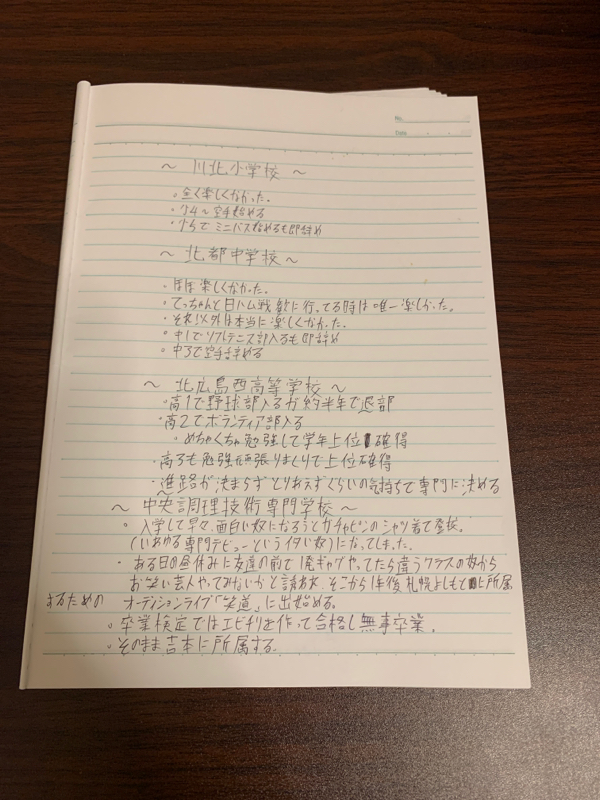 No.
Date
〜 川北小学校 〜
・全く楽しくなかった。
・小4〜空手始める
・小5でミニバス始めるも即辞め
〜 北都中学校 〜
・ほぼ楽しくなかった。
・てっちゃんと日ハム戦観に行ってる時は唯一楽しかった。
・それ以外は本当に楽しくなかった。
・中1でソフトテニス部入るも即辞め
・中3で空手辞める
〜 北広島西高等学校 〜
・高1で野球部入るが約半年で退部
・高2でボランティア部入る
・めちゃくちゃ勉強して学年上位確得
・高3も勉強頑張りまくりで上位確得
・進路が決まらずとりあえずくらいの気持ちで専門に決める
〜 中央調理技術専門学校 〜
・入学して早々、面白い奴になろうとガチャピンのシャツ着て登校。
(いわゆる専門デビューというイタい奴)になってしまった。
・ある日の昼休みに友達の前で1発ギャグやってたら違うクラスの奴から
お笑い芸人やってみないかと誘われ、そこから1年後札幌よしもとに所属
するための オーディションライブ「笑道」に出始める。
・卒業検定ではエビチリを作って合格し無事卒業。
・そのまま吉本に所属する。